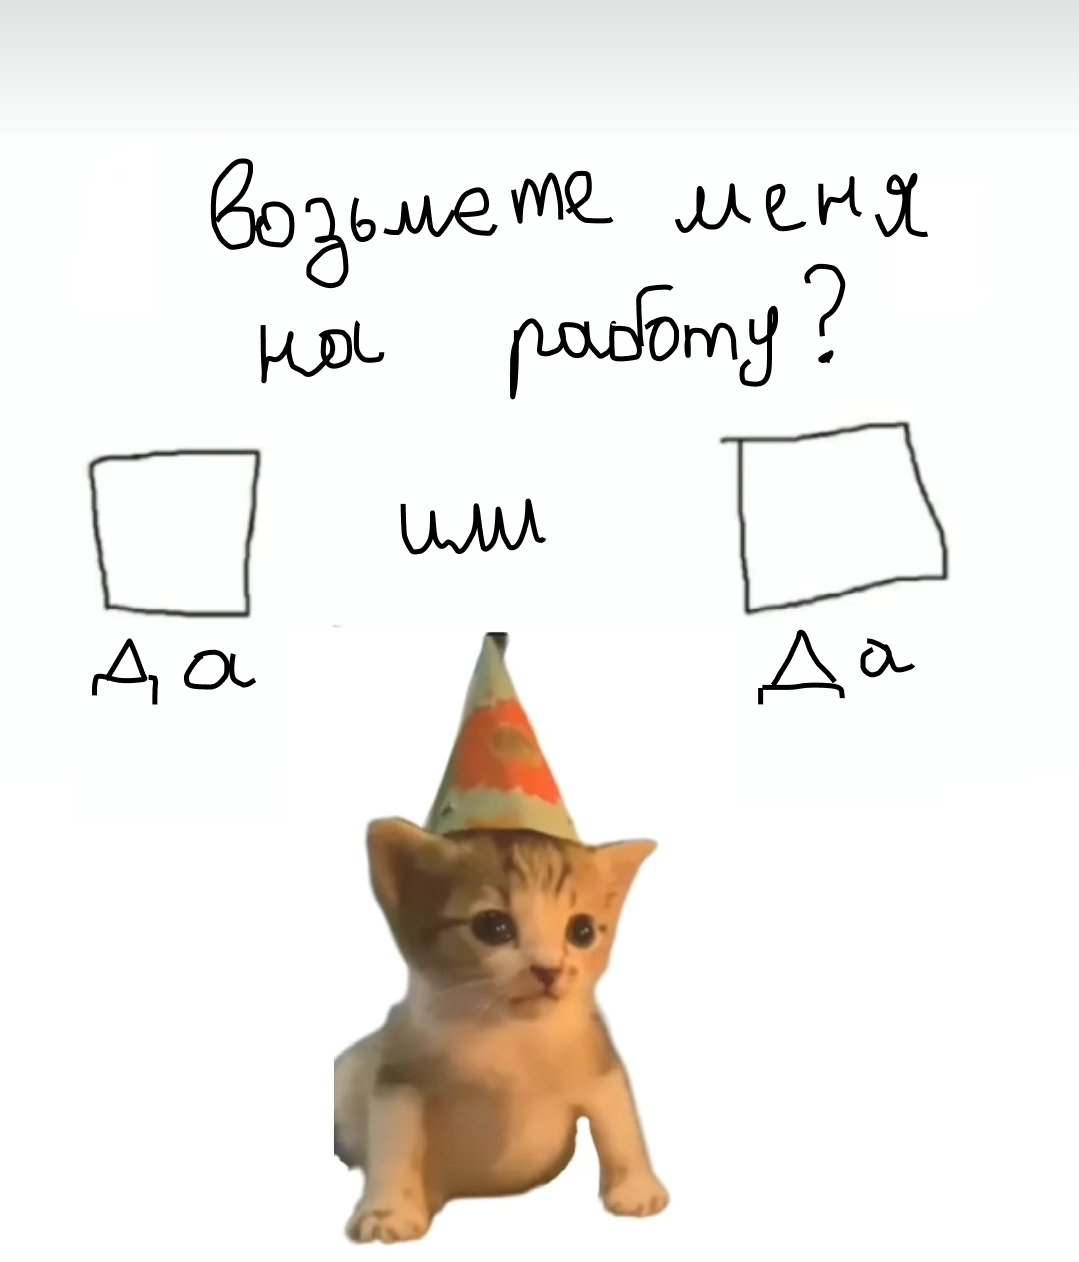 возьмете меня
на работу?
или
да Да